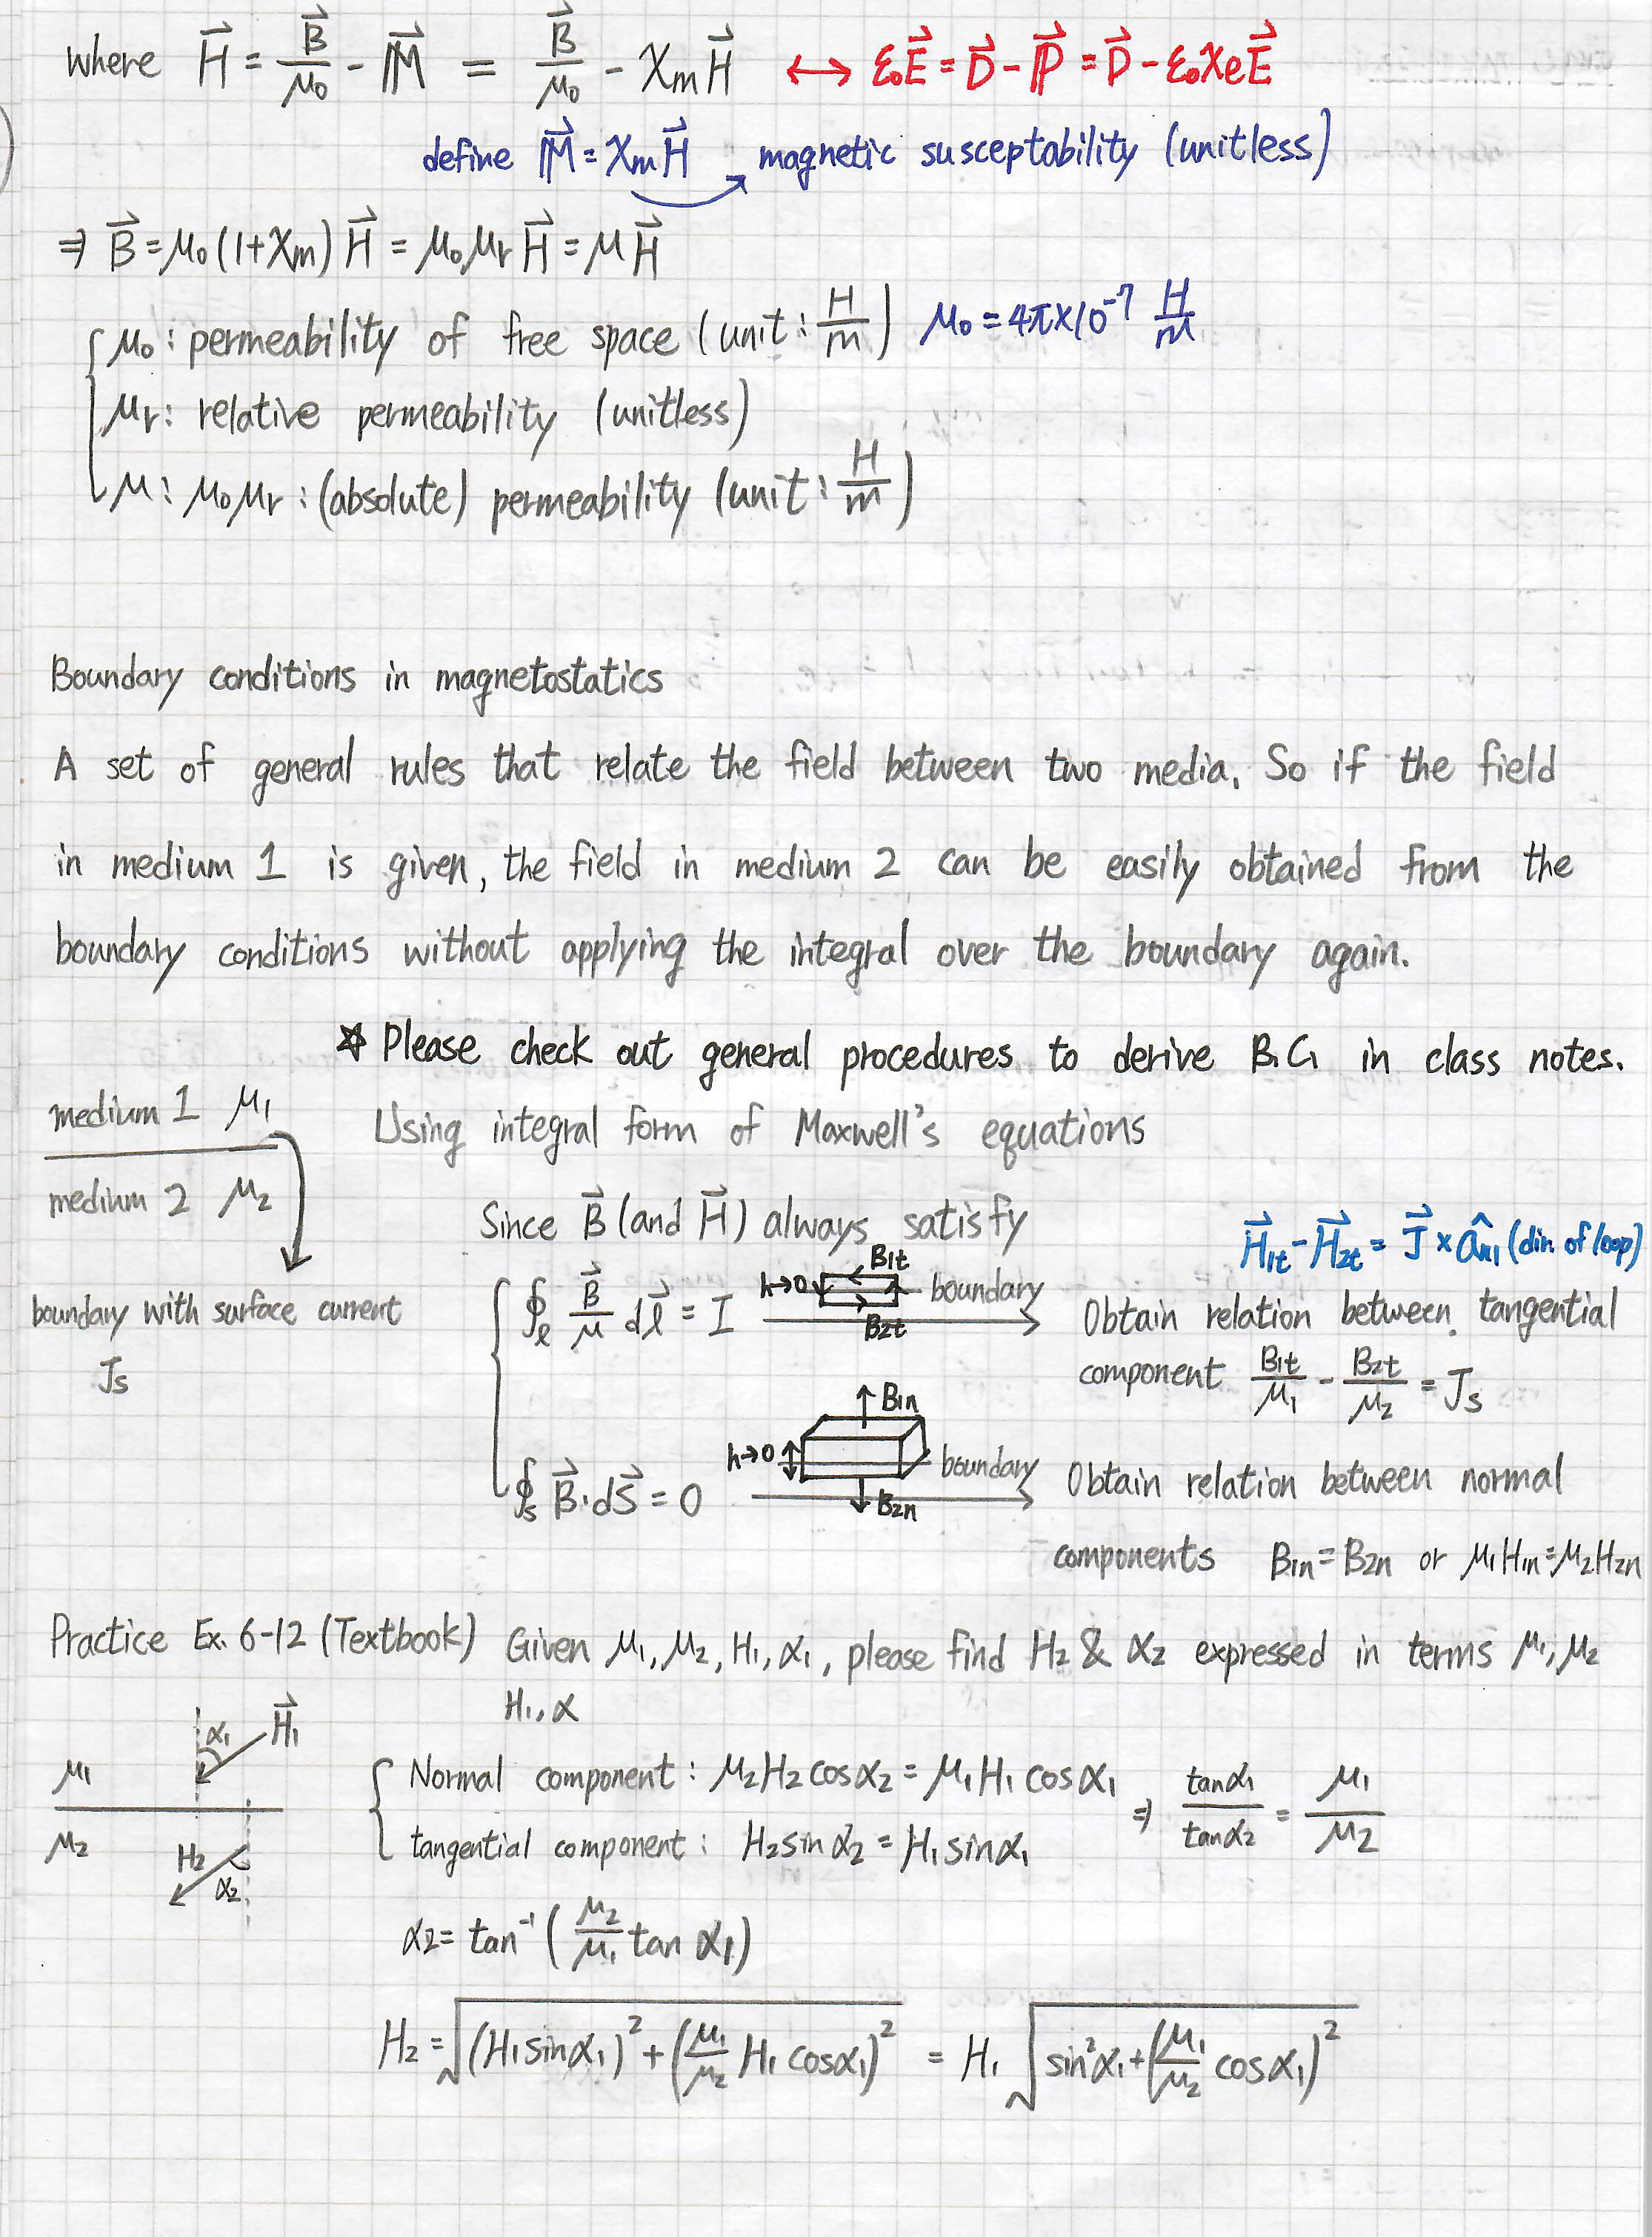 where H⃗ = B⃗/μ₀ - M⃗ = B⃗/μ₀ - χmH⃗ ↔ ε₀E⃗ = D⃗ - P⃗ = D⃗ - ε₀χeE⃗
define M⃗ = χmH⃗ → magnetic susceptability (unitless)
⇒ B⃗ = μ₀(1+χm)H⃗ = μ₀μrH⃗ = μH⃗
μ₀ : permeability of free space (unit : H/m) μ₀ = 4π×10⁻⁷ H/m
μr : relative permeability (unitless)
μ : μ₀μr : (absolute) permeability (unit : H/m)
Boundary conditions in magnetostatics
A set of general rules that relate the field between two media. So if the field
in medium 1 is given, the field in medium 2 can be easily obtained from the
boundary conditions without applying the integral over the boundary again.
☆ Please check out general procedures to derive B.C. in class notes.
medium 1 μ₁
medium 2 μ₂
boundary with surface current
Js
Using integral form of Maxwell's equations
Since B⃗ (and H⃗) always satisfy
H⃗1t - H⃗2t = J⃗ × ân1 (dir. of loop)
∮ℓ B⃗/μ dℓ⃗ = I
h→0 B1t boundary
B2t
Obtain relation between tangential
component B1t/μ₁ - B2t/μ₂ = Js
∮s B⃗·dS⃗ = 0
B1n
h→0 boundary
B2n
Obtain relation between normal
components B1n = B2n or μ₁H1n = μ₂H2n
Practice Ex. 6-12 (Textbook) Given μ₁, μ₂, H₁, α₁, please find H₂ & α₂ expressed in terms μ₁, μ₂
H₁, α
α₁ H⃗₁
μ₁
μ₂
H₂
α₂
Normal component : μ₂H₂cosα₂ = μ₁H₁cosα₁
tangential component : H₂sinα₂ = H₁sinα₁
⇒ tanα₁/tanα₂ = μ₁/μ₂
α₂ = tan⁻¹(μ₂/μ₁ tan α₁)
H₂ = √((H₁sinα₁)² + (μ₁/μ₂ H₁ cosα₁)²) = H₁ √(sin²α₁ + (μ₁/μ₂ cosα₁)²)